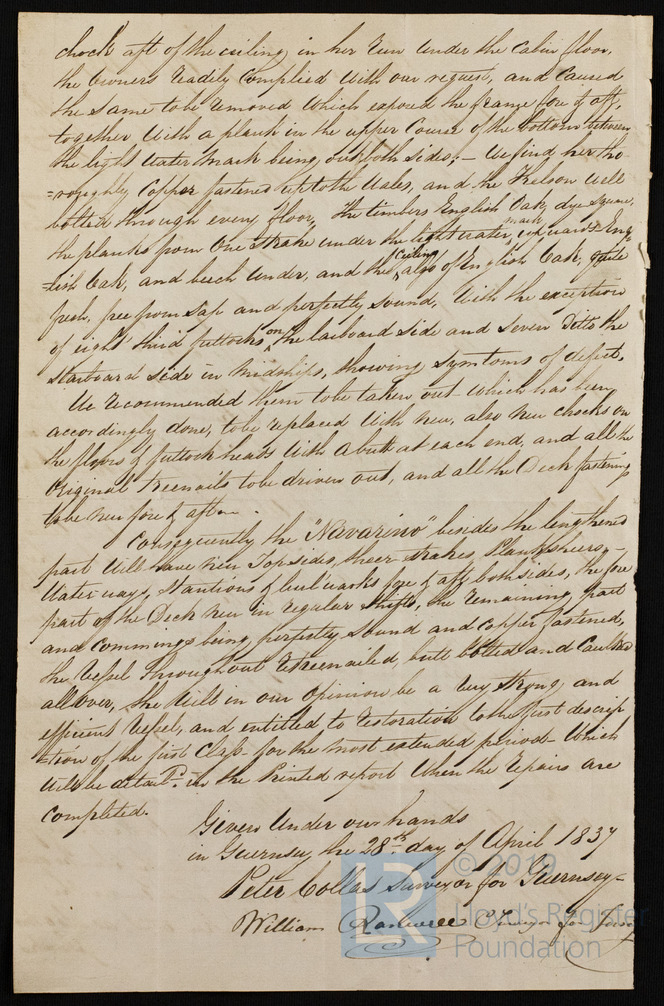 chock aft of the ceiling in her Run under the Cabin floor,
the Owners readily Complied with our request, and Caused
the same to be removed which exposed the frange fore & aft,
together with a plank in the upper Course of the bottom between
the light water mark being out both sides,- We find her tho
=roughly Copper fastened up to the Wales, and the Kelson well
bolted through every floor, The timbers English Oak, square,
the planks from One Strake under the light water mark upwards Eng
=lish Oak, and beech under, and the Ceiling also of English Oak, quite
fresh, free from Sap and perfectly Sound, With the exception
of eight third futtocks on the larboard Side and Seven Ditto the
starboard Side in Midships, showing Symptoms of defect.
We recommended them to be taken out which has been
accordingly done, to be replaced With new, also new chocks on
the floors & futtock heads With a butt at each end, and all the
Original treenails to be driven out, and all the Deck fastenings
to be new fore & aft.
Consequently the "Navarino" besides the lengthened
part Will have new Topsides, sheer strakes, Plansheers,-
Waterways, Stantions & bulwarks fore & aft, both sides, the fore
part of the Deck new in regular Shifts, the remaining part
and commings being perfectly Sound and Copper fastened,
the Vessel throughout retreenailed, butt bolted and Caulked
all over, She will in our Opinion be a Very Strong and
efficient Vessel, and entitled to restoration to the first descrip
=tion of the first Class for the most extended period Which
Will be detaild. in the Printed report When the repairs are
completed.
Given Under our hands
in Guernsey the 28th day of April 1837
Peter Collas Surveyor for Guernsey-
William
© 2019
LR
Lloyd's Register
Foundation